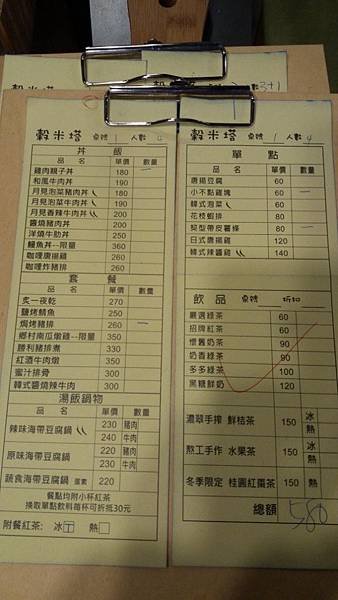 穀米塔 桌號 1 人數 4
丼飯
品名 單價 數量
雞肉親子丼 180 一
和風牛肉丼 180
月見泡菜豬肉丼 190
月見泡菜牛肉丼 200
月見香辣牛肉丼 200
醬燒豬肉丼 200
洋燒牛肋丼 250
鰻魚丼--限量 360
咖哩唐揚雞 260
咖哩炸豬排 260
套餐
品名 單價 數量
炙一夜乾 270
鹽烤鯖魚 250
焗烤豬排 260 一
鄉村南瓜燉雞--限量 350
勝利豬排煮 330
紅酒牛肉燉 350
蜜汁排骨 300
韓式醬燒辣牛肉 300
湯飯鍋物
品名 單價 數量
辣味海帶豆腐鍋 230 豬肉
240 牛肉
原味海帶豆腐鍋 220 豬肉
230 牛肉
蔬食海帶豆腐鍋 蛋素 220
餐點均附小杯紅茶
換取單點飲料每杯可折抵30元
附餐紅茶: 冰 熱
穀米塔 桌號 1 人數 4
單點
品名 單價 數量
唐揚豆腐 60
小不點雞塊 60 一
韓式泡菜 60
花枝蝦排 80
契型帶皮薯條 80 一
日式唐揚雞 120
韓式辣醬雞 140
飲品 桌號 折扣
嚴選綠茶 60
招牌紅茶 60
懷舊奶茶 90
奶香綠茶 90
多多綠茶 100
黑糖鮮奶 120
濃萃手搾 鮮桔茶 150 冰 熱
熬工手作 水果茶 150 冰 熱
冬季限定 桂圓紅棗茶 150 熱
總額 580